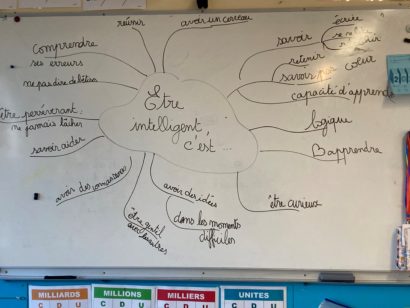 réunir
avoir un cerveau
comprendre
ses erreurs
ne pas dire de bêtises
être persévérant,
ne jamais lâcher
savoir aider
avoir des connaissances
être gentil
avec les autres
avoir des idées
dans les moments
difficiles
être curieux
Être
intelligent,
c'est ...
savoir
écrire
retenir
savoir par cœur
capacité d'apprendre
logique
apprendre
MILLIARDS
C D U
MILLIONS
C D U
MILLIERS
C D U
UNITES
C D U